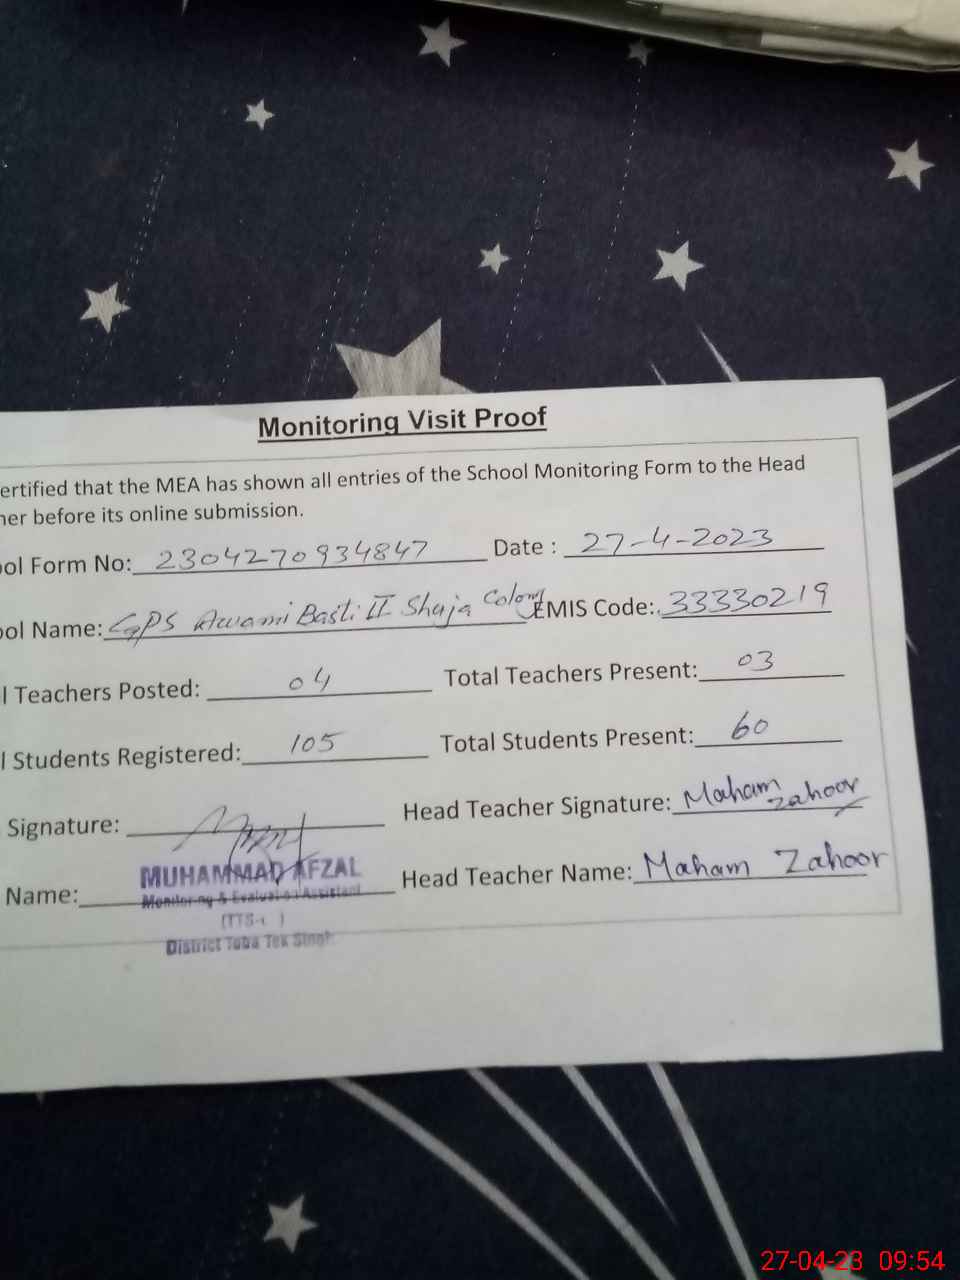 Monitoring Visit Proof
ertified that the MEA has shown all entries of the School Monitoring Form to the Head
her before its online submission.
ool Form No: 2304270934847 Date : 27-4-2023
ool Name: GPS Awami Basti II Shuja Colony EMIS Code:. 33330219
l Teachers Posted: 04 Total Teachers Present: 03
l Students Registered: 105 Total Students Present: 60
Signature: Head Teacher Signature: Maham Zahoor
Name: MUHAMMAD AFZAL Head Teacher Name: Maham Zahoor
Monitoring & Evaluation Assistant
District Toba Tek Singh
27-04-23 09:54